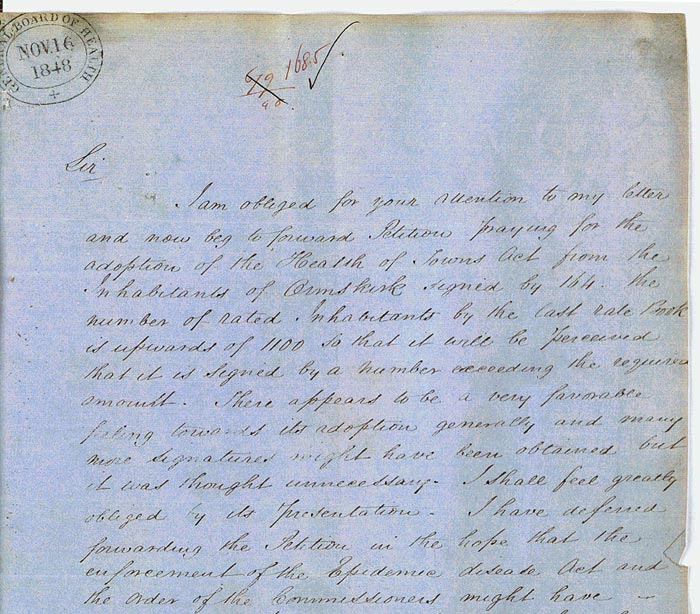 GENERAL BOARD OF HEALTH
NOV. 16
1848
1685
Sir
I am obliged for your attention to my letter
and now beg to forward Petition praying for the
adoption of the Health of Towns Act from the
Inhabitants of Ormskirk signed by 164. the
number of rated Inhabitants by the last rate Book
is upwards of 1100 so that it will be perceived
that it is signed by a number exceeding the required
amount. There appears to be a very favorable
feeling towards its adoption generally and many
more signatures might have been obtained but
it was thought unnecessary. I shall feel greatly
obliged by its presentation. I have deferred
forwarding the Petition in the hope that the
enforcement of the Epidemic disease Act and
the order of the Commissioners might have –